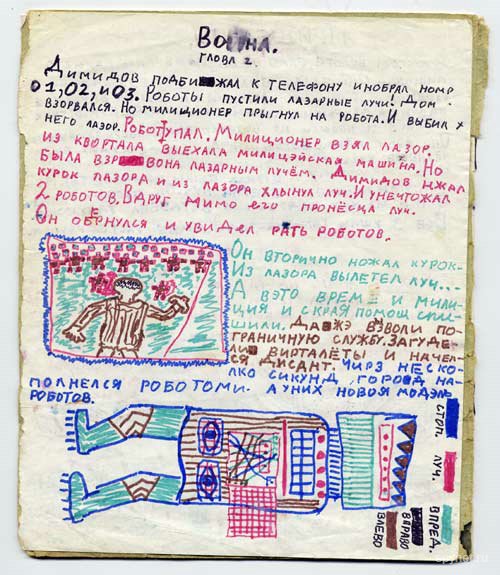 Война.
глова 2.
Димидов подбижал к телефону инобрал номр
01,02, и 03. Роботы пустили лазарные лучи! Дом
взорвался. Но милиционер прыгнул на робота. И выбил х
него лазор. Робот упал. Милиционер взял лазор.
из квортала выехала милицэйская машина. Но
была взрвона лазарным лучём. Димидов нжал
курок лазора и из лазора хлынул луч. И унечтожал
2 роботов. Вдруг мимо его пронёсца луч.
Он обернулся и увидел рать роботов.
Он вторично ножал курок-
Из лазора вылетел луч...
А вэто время и мили-
ция и скрая помощ спи-
шили. Дажэ взволи по-
граничную службу. Загуде-
ли вирталёты и начел-
ся дисант. Чирз неско-
лко сикунд город на-
полнелся роботоми. А у них новоя модэль
роботов.
стоп.
луч.
впред.
вправо
влево